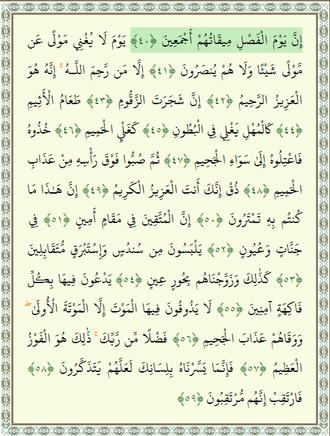 إِنَّ يَوْمَ الْفَصْلِ مِيقَاتُهُمْ أَجْمَعِينَ ﴿٤٠﴾ يَوْمَ لَا يُغْنِي مَوْلًى عَن
مَّوْلًى شَيْئًا وَلَا هُمْ يُنصَرُونَ ﴿٤١﴾ إِلَّا مَن رَّحِمَ اللَّـهُ ۚ إِنَّهُ هُوَ
الْعَزِيزُ الرَّحِيمُ ﴿٤٢﴾ إِنَّ شَجَرَتَ الزَّقُّومِ ﴿٤٣﴾ طَعَامُ الْأَثِيمِ
﴿٤٤﴾ كَالْمُهْلِ يَغْلِي فِي الْبُطُونِ ﴿٤٥﴾ كَغَلْيِ الْحَمِيمِ ﴿٤٦﴾ خُذُوهُ
فَاعْتِلُوهُ إِلَىٰ سَوَاءِ الْجَحِيمِ ﴿٤٧﴾ ثُمَّ صُبُّوا فَوْقَ رَأْسِهِ مِنْ عَذَابِ
الْحَمِيمِ ﴿٤٨﴾ ذُقْ إِنَّكَ أَنتَ الْعَزِيزُ الْكَرِيمُ ﴿٤٩﴾ إِنَّ هَـٰذَا مَا
كُنتُم بِهِ تَمْتَرُونَ ﴿٥٠﴾ إِنَّ الْمُتَّقِينَ فِي مَقَامٍ أَمِينٍ ﴿٥١﴾ فِي
جَنَّاتٍ وَعُيُونٍ ﴿٥٢﴾ يَلْبَسُونَ مِن سُندُسٍ وَإِسْتَبْرَقٍ مُّتَقَابِلِينَ
﴿٥٣﴾ كَذَٰلِكَ وَزَوَّجْنَاهُم بِحُورٍ عِينٍ ﴿٥٤﴾ يَدْعُونَ فِيهَا بِكُلِّ
فَاكِهَةٍ آمِنِينَ ﴿٥٥﴾ لَا يَذُوقُونَ فِيهَا الْمَوْتَ إِلَّا الْمَوْتَةَ الْأُولَىٰ ۖ
وَوَقَاهُمْ عَذَابَ الْجَحِيمِ ﴿٥٦﴾ فَضْلًا مِّن رَّبِّكَ ۚ ذَٰلِكَ هُوَ الْفَوْزُ
الْعَظِيمُ ﴿٥٧﴾ فَإِنَّمَا يَسَّرْنَاهُ بِلِسَانِكَ لَعَلَّهُمْ يَتَذَكَّرُونَ ﴿٥٨﴾
فَارْتَقِبْ إِنَّهُم مُّرْتَقِبُونَ ﴿٥٩﴾